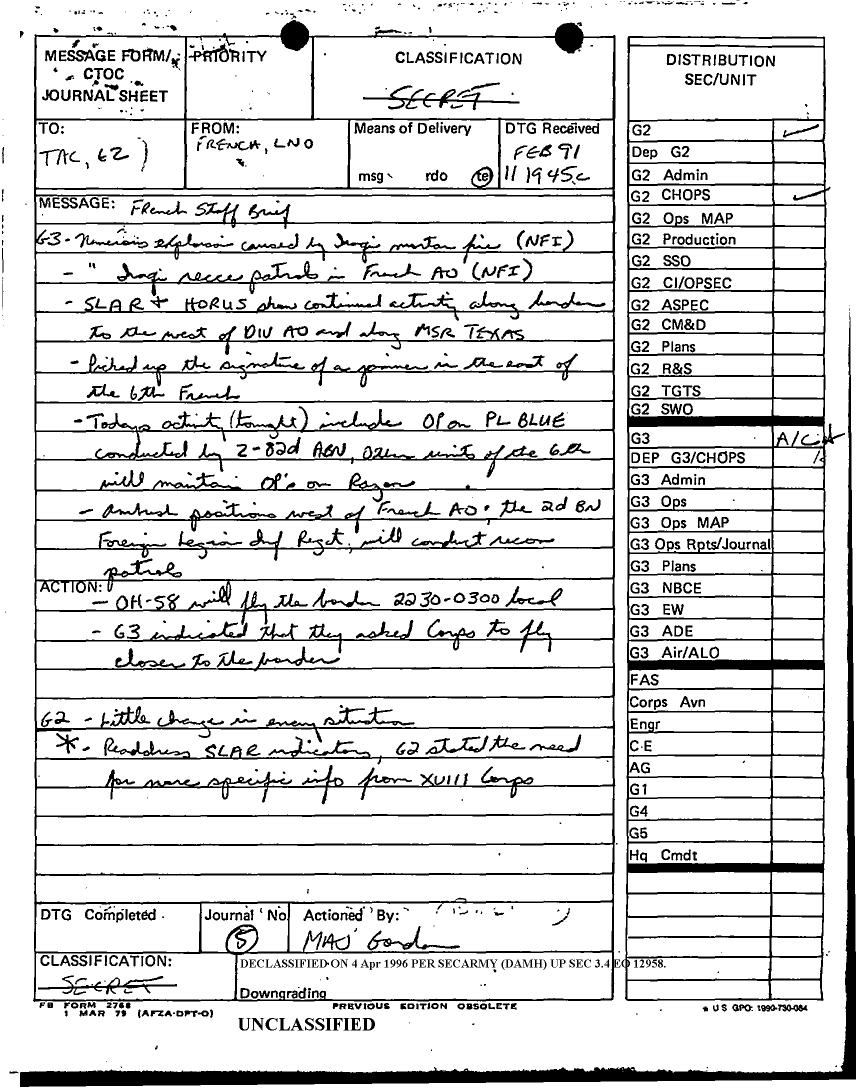 MESSAGE FORM/
CTOC
JOURNAL SHEET
PRIORITY
CLASSIFICATION
SECRET
TO:
TAC, G2)
FROM:
FRENCH, LNO
Means of Delivery
msg rdo te
DTG Received
FEB 91
11 1945 C
MESSAGE: French Staff Brief
G3 - Numerous explosion caused by Iraqi mortar fire (NFI)
- " Iraqi recce patrols in French AO (NFI)
- SLAR + HORUS show continual activity along border
to the west of DIV AO and along MSR TEXAS
- Picked up the signature of a jammer in the east of
the 6th French
- Todays activity (tonight) include OP on PL BLUE
conducted by 2-82d ABN, other units of the 6th
will maintain OP's on Razor
- Ambush positions west of French AO, the 2d BN
Foreign Legion Inf Regt, will conduct recon
patrols
ACTION:
- OH-58 will fly the border 2230-0300 local
- G3 indicated that they asked Corps to fly
closer to the border
G2 - Little change in enemy situation
* - Readdress SLAR indicators, G2 stated the need
for more specific info from XVIII Corps
DTG Completed
Journal No
5
Actioned By:
MAJ Gordon
CLASSIFICATION:
SECRET
DECLASSIFIED ON 4 Apr 1996 PER SECARMY (DAMH) UP SEC 3.4 EO 12958.
Downgrading
FB FORM 2768
1 MAR 79 (AFZA-DPT-O)
PREVIOUS EDITION OBSOLETE
UNCLASSIFIED
DISTRIBUTION
SEC/UNIT
G2
Dep G2
G2 Admin
G2 CHOPS
G2 Ops MAP
G2 Production
G2 SSO
G2 CI/OPSEC
G2 ASPEC
G2 CM&D
G2 Plans
G2 R&S
G2 TGTS
G2 SWO
G3
DEP G3/CHOPS
G3 Admin
G3 Ops
G3 Ops MAP
G3 Ops Rpts/Journal
G3 Plans
G3 NBCE
G3 EW
G3 ADE
G3 Air/ALO
FAS
Corps Avn
Engr
C-E
AG
G1
G4
G5
Hq Cmdt
* U S GPO: 1990-730-084